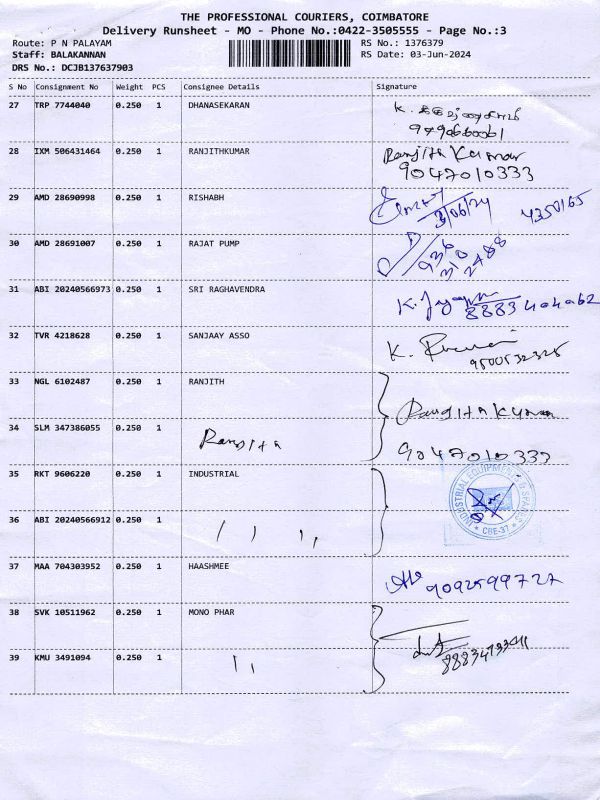 THE PROFESSIONAL COURIERS, COIMBATORE
Delivery Runsheet - MO - Phone No.:0422-3505555 - Page No.:3
Route: P N PALAYAM RS No.: 1376379
Staff: BALAKANNAN RS Date: 03-Jun-2024
DRS No.: DCJB137637903
S No Consignment No Weight PCS Consignee Details Signature
27 TRP 7744040 0.250 1 DHANASEKARAN K.
28 IXM 506431464 0.250 1 RANJITHKUMAR Ranjith Kumar
9047010333
29 AMD 28690998 0.250 1 RISHABH
3/06/24 4350165
30 AMD 28691007 0.250 1 RAJAT PUMP
936
310
2488
31 ABI 20240566973 0.250 1 SRI RAGHAVENDRA K.
8883404062
32 TVR 4218628 0.250 1 SANJAAY ASSO K.
9500532325
33 NGL 6102487 0.250 1 RANJITH Ranjith Kumar
34 SLM 347386055 0.250 1 Ranjith
9047010333
35 RKT 9606220 0.250 1 INDUSTRIAL
INDUSTRIAL EQUIPMENTS & SPARES
* CBE-37 *
36 ABI 20240566912 0.250 1
37 MAA 704303952 0.250 1 HAASHMEE
9092599727
38 SVK 10511962 0.250 1 MONO PHAR
39 KMU 3491094 0.250 1